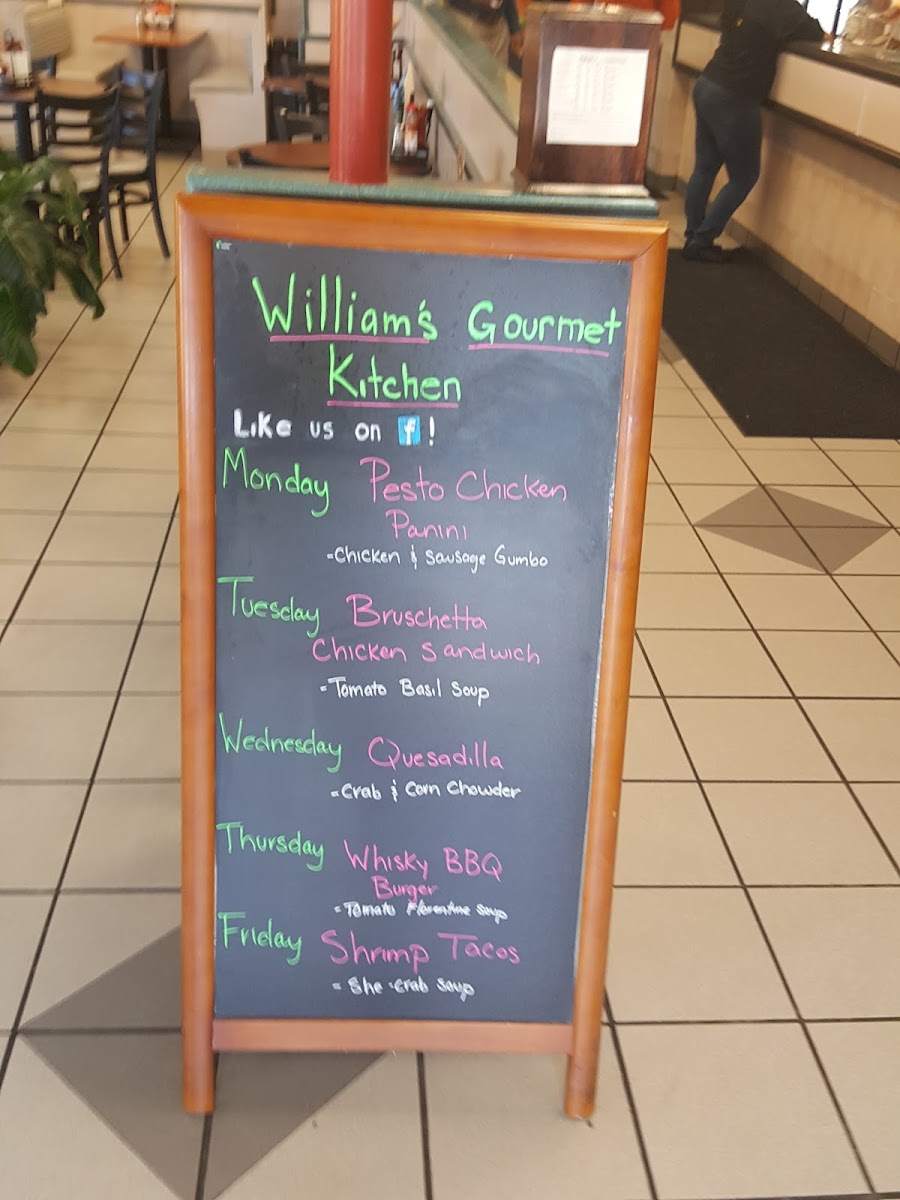 William's Gourmet
Kitchen
Like us on f!
Monday Pesto Chicken
Panini
-Chicken & Sausage Gumbo
Tuesday Bruschetta
Chicken Sandwich
-Tomato Basil Soup
Wednesday Quesadilla
-Crab & Corn Chowder
Thursday Whisky BBQ
Burger
-Tomato Florentine Soup
Friday Shrimp Tacos
-She-crab soup